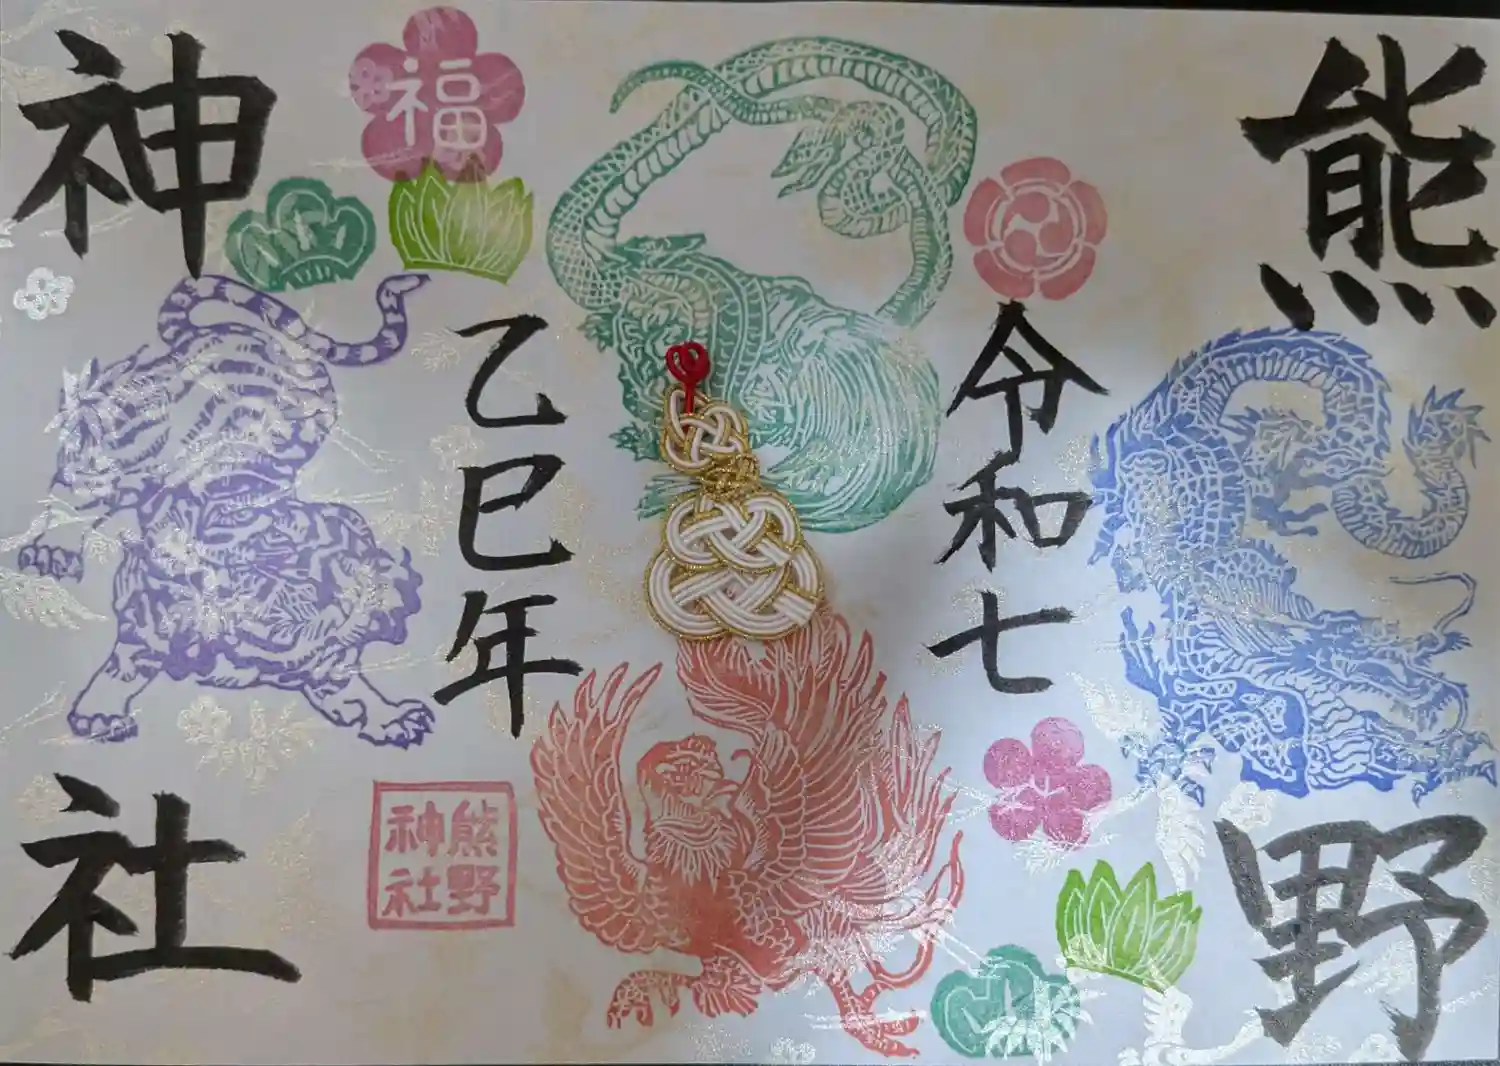 熊野
神社
令和七
乙巳年
福
熊野
神社